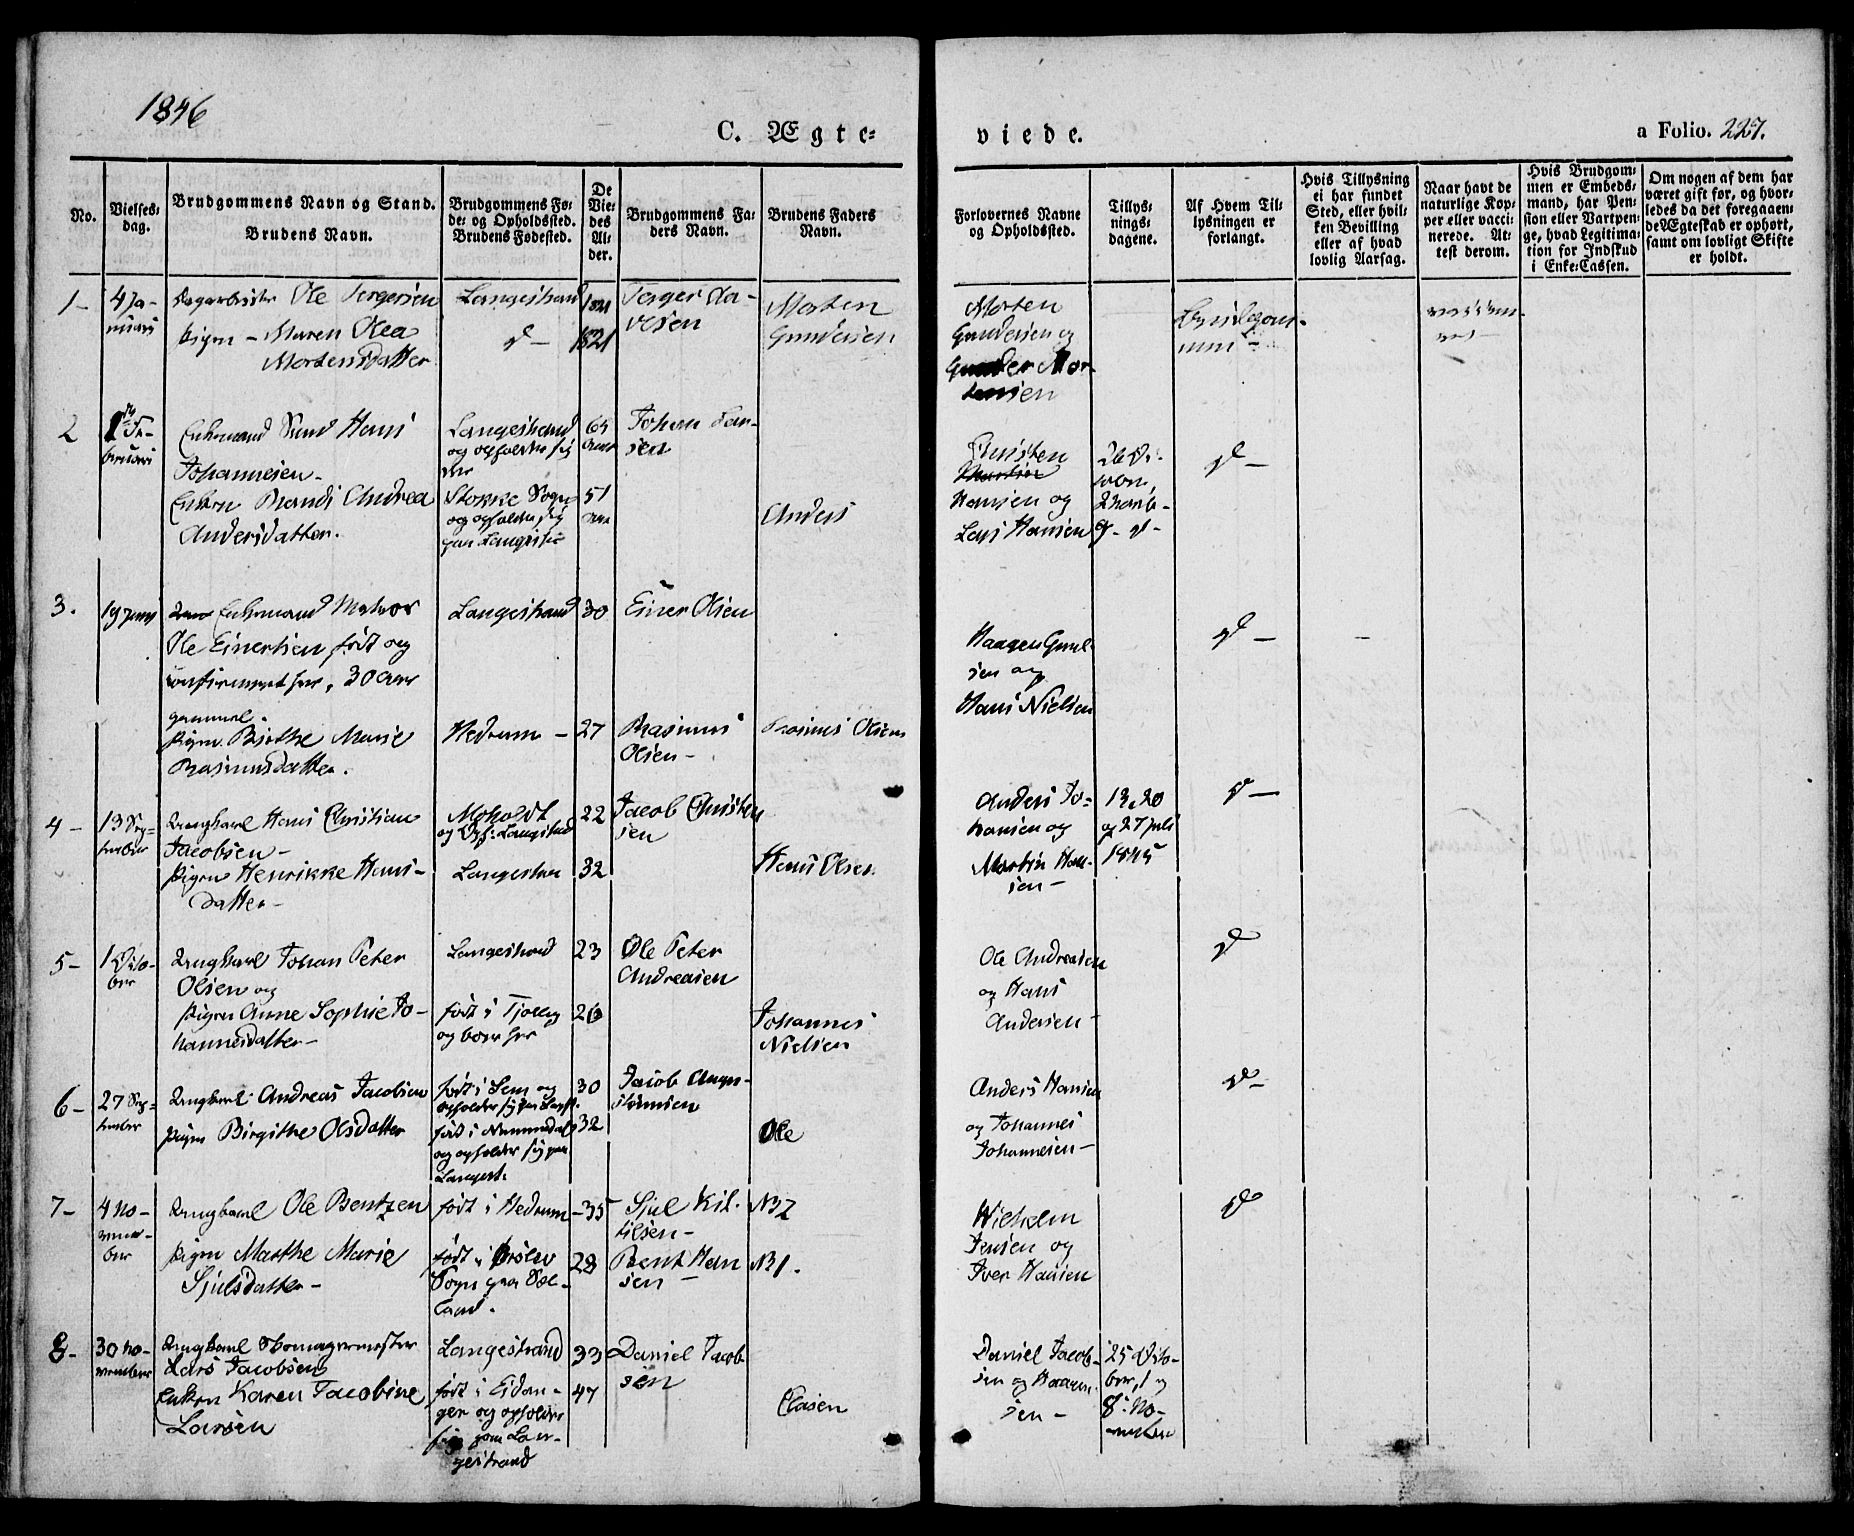 1846
C. Ægte-
viede.
a Folio. 227.
No.
Vielses-
dag.
Brudgommens Navn og Stand.
Brudens Navn.
Brudgommens Fø-
de- og Opholdssted.
Brudens Fødested.
De
Vie-
des
Al-
der.
Brudgommens Fa-
ders Navn.
Brudens Faders
Navn.
Forlovernes Navne
og Opholdssted.
Tillys-
nings-
dagene.
Af Hvem Til-
lysningen er
forlangt.
Hvis Tillysning
ei har fundet
Sted, eller hvil-
ken Bevilling
eller af hvad
lovlig Aarsag.
Naar havt de
naturlige Kop-
per eller vacci-
nerede. At-
test derom.
Hvis Brudgom-
men er Embeds-
mand, har Pen-
sion eller Vartpen-
ge, hvad Legitima-
tion for Indskud
i Enke-Cassen.
Om nogen af dem har
været gift før, og hvor-
ledes da det foregaaen-
de Ægteskab er ophørt,
samt om lovligt Skifte
er holdt.
1-
4 Ja-
nuari
Ole Tergersen
Pigen - Maren Olea
Mortensdatter
Langestrand
d -
1821
Terger
Morten
Gundersen
Morten
Gundersen og
Mor-
tensen
2
Februari
Enkemand Hans
Johannesen.
Enken Randi Andrea
Andersdatter.
Langestrand
og opholder sig
her
Stokke Sogn
og opholder sig
paa
65
Aar
51
Aar
Johan
sen
Anders
Hansen og
Lars Hansen
26
d -
3.
19 Juni
Enkemand
Ole Einertsen født og
confirmeret her, 30 Aar
gammel.
Pigen Birthe Marie
Rasmusdatter.
Langestrand
Hedrum -
30
27
Einer Olsen
Rasmus
Olsen -
Rasmus Olsen
Haagen
sen og
Hans Nielsen
d -
4 -
13 Sep-
tember
Ungkarl Hans Christian
Jacobsen -
Pigen Henrikke Hans-
datter -
Moholdt
22
32
Jacob Christen
sen
Hans Olsen
Anders Jo-
hansen og
Martin Han-
sen -
13, 20
og 27 Juli
1845
d -
5-
1 Octo-
ber
Ungkarl Johan Peter
Olsen og
Pigen Anne Sophie Jo-
hannesdatter -
Langestrand
født i Tjølling
og boer her
23
26
Ole Peter
Andreasen
Johannes
Nielsen
Ole Andreasen
og Hans
Andersen -
d
6-
27 Sep-
tember
Ungkarl Andreas Jacobsen
Pigen Birgithe Olsdatter
født i Sem og
opholder sig paa
født i Nummedal
og opholder sig paa
Langest.
30
32
Jacob
Ole
Anders Hansen
og Johannes
Johannesen -
d -
7-
4 No-
vem-
ber
Ungkarl Ole Bentzen
Pigen Marthe Marie
Sjulsdatter -
født i Hedrum
født i
Sogn paa Sæl-
land.
35
28
Sjul Kil-
tilsen -
Bent Han
sen -
N2
N1.
Wilhelm
Jensen og
Iver Hansen
d
8-
30 No-
vember
Ungkarl Skomagermester
Lars Jacobsen
Enken Karen Jacobine
Larsen
Langestrand
født i Eidan-
ger og opholder
sig paa Lan-
gestrand
33
47
Daniel Jacob
sen
Clasen
Daniel Jacob-
sen og Haagen
sen -
25 Octo-
ber, 1 og
8. No-
vember